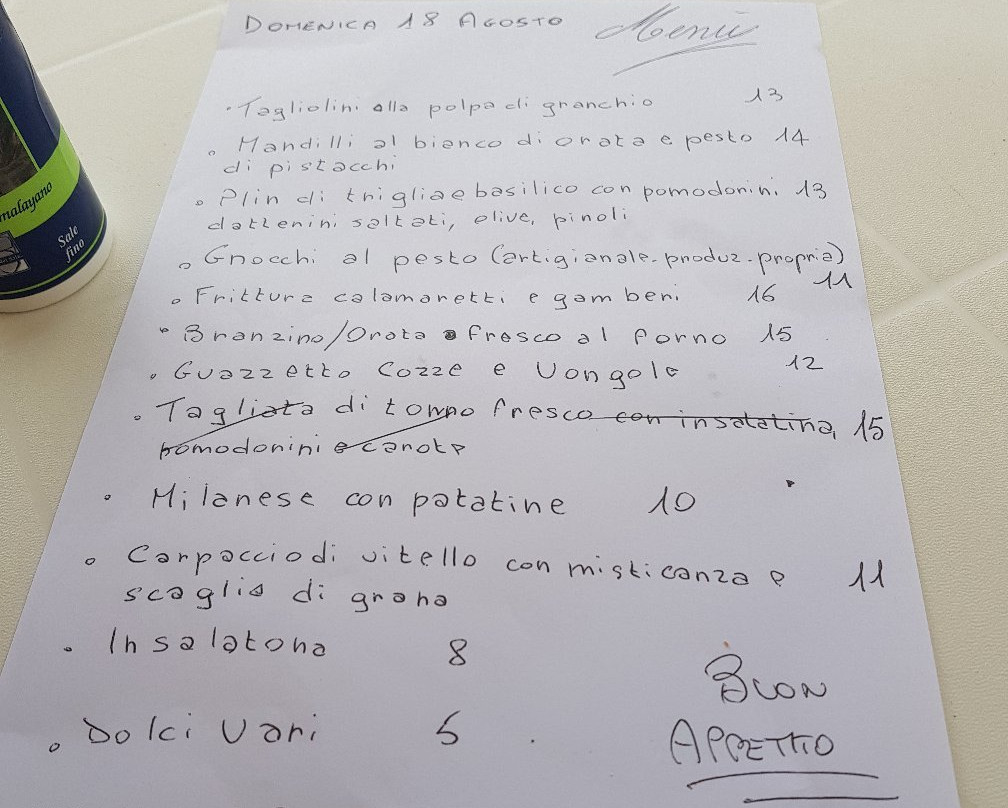 DOMENICA 18 AGOSTO Menù
• Tagliolini alla polpa di granchio 13
• Mandilli al bianco di orata e pesto 14
di pistacchi
• Plin di triglia e basilico con pomodorini 13
datterini saltati, olive, pinoli
• Gnocchi al pesto (artigianale-produz.propria)
11
• Frittura calamaretti e gamberi 16
• Branzino/Orata fresco al forno 15
• Guazzetto Cozze e Vongole 12
• Tagliata di tonno fresco con insalatina, 15
pomodorini e carote
• Milanese con patatine 10
• Carpaccio di vitello con misticanza e 11
scaglie di grana
• Insalatona 8
• Dolci Vari 5
BUON
APPETITO
malayano
Sale
fino